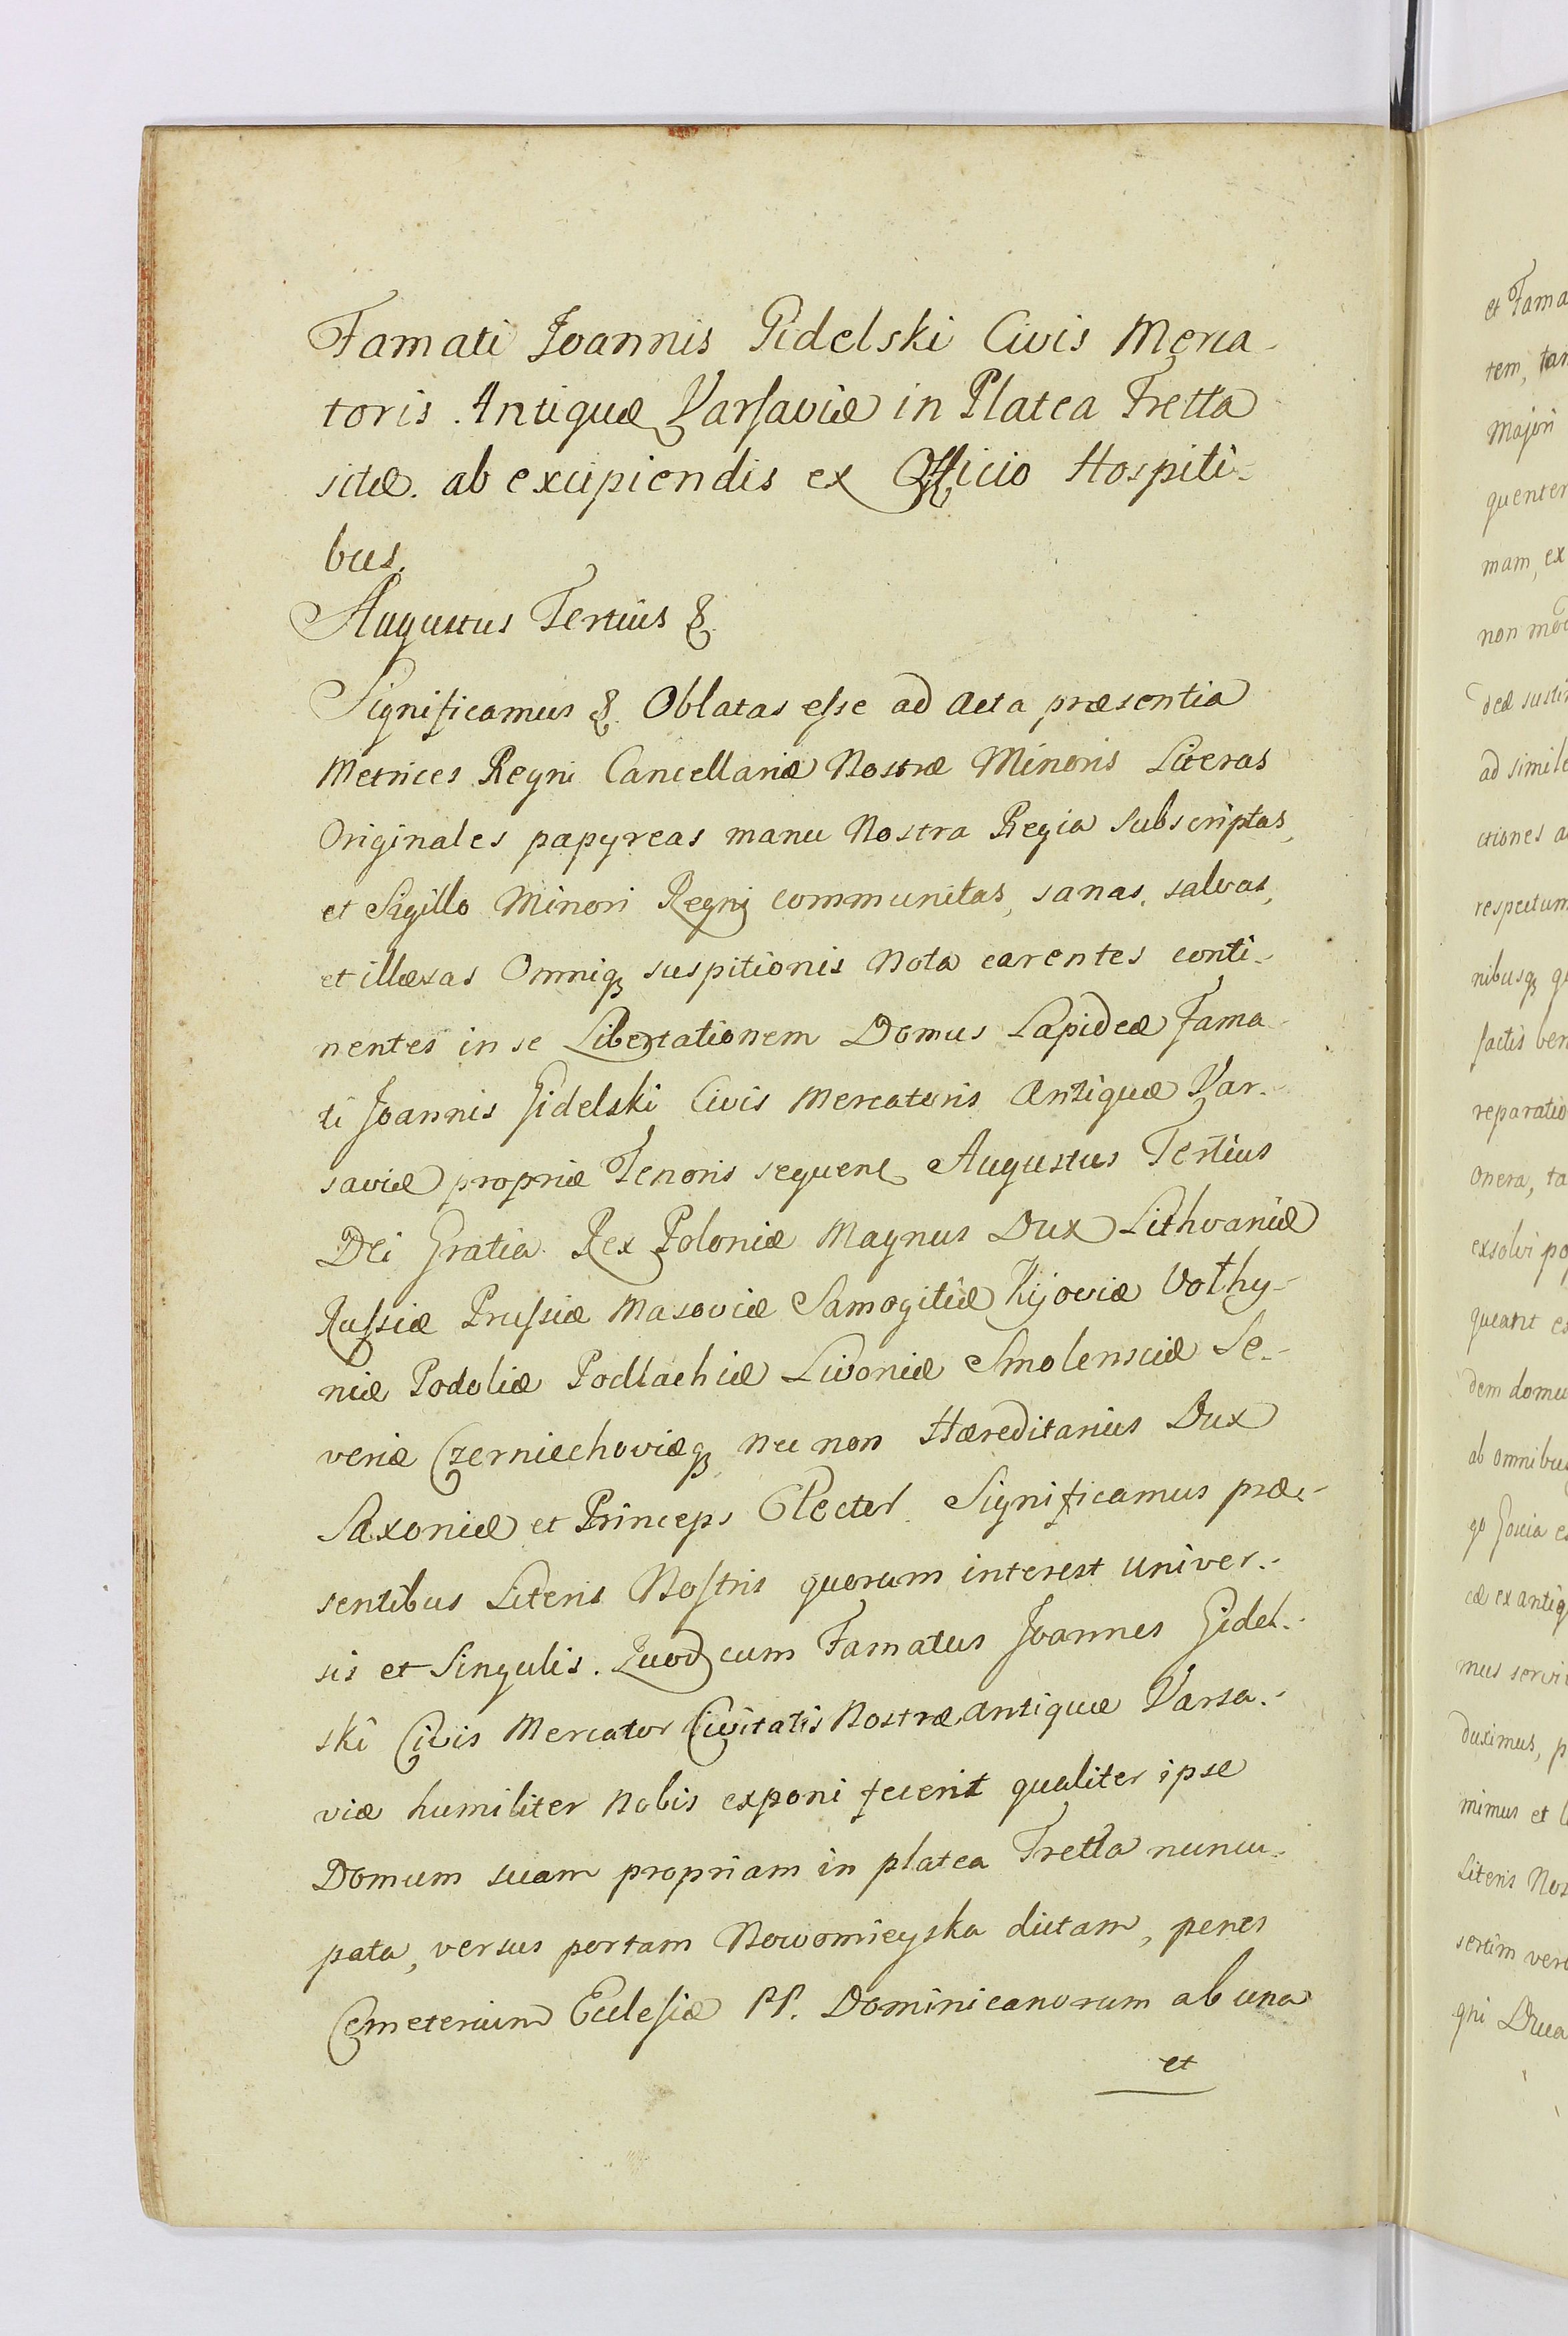 Famati Joannis Gidelski Civis Merca-
toris Antiquæ Varsaviæ in Platea Fretta
sitæ ab excipiendis ex Officio Hospiti-
bus.
Augustus Tertius &.
Significamus &. Oblatas esse ad Acta præsentia
Metrices Regni Cancellariæ Nostræ Minoris Literas
Originales papyreas manu Nostra Regia subscriptas,
et Sigillo Minori Regni communitas, sanas, salvas,
et illæsas Omniq; suspitionis Nota carentes conti-
nentes in se Libertationem Domus Lapideæ Fama-
ti Joannis Gidelski Civis Mercatoris Antiquæ Var-
saviæ propriæ Tenoris sequen: Augustus Tertius
Dei Gratia Rex Poloniæ Magnus Dux Lithvaniæ
Russiæ Prussiæ Masoviæ Samogitiæ Kijoviæ Volhy-
niæ Podoliæ Podlachiæ Livoniæ Smolensciæ Se-
veriæ Czerniechoviæq; nec non Hæreditarius Dux
Saxoniæ et Princeps Elector. Significamus præ-
sentibus Literis Nostris quorum interest univer-
sis et Singulis. Quod cum Famatus Joannes Gidel-
ski Civis Mercator Civitatis Nostræ Antiquæ Varsa-
viæ humiliter Nobis exponi fecerit qualiter ipse
Domum suam propriam in platea Fretta nuncu-
pata, versus portam Nowomieyska dictam, penes
Cemeterium Ecclesiæ PP. Dominicanorum ab una
et
et Fama
tem, tan
Majori
quenter
mam, ex
non mod
deæ susti
ad simile
ctiones a
respectum
nibusq; qu
factis ben
reparatio
onera, ta
exsolvi po
queant es
dem domu
ab omnibus
go Goscia es
cæ ex antiq
mus servi
duximus, p
mimus et l
Literis Nos
sertim vero
gni Duca